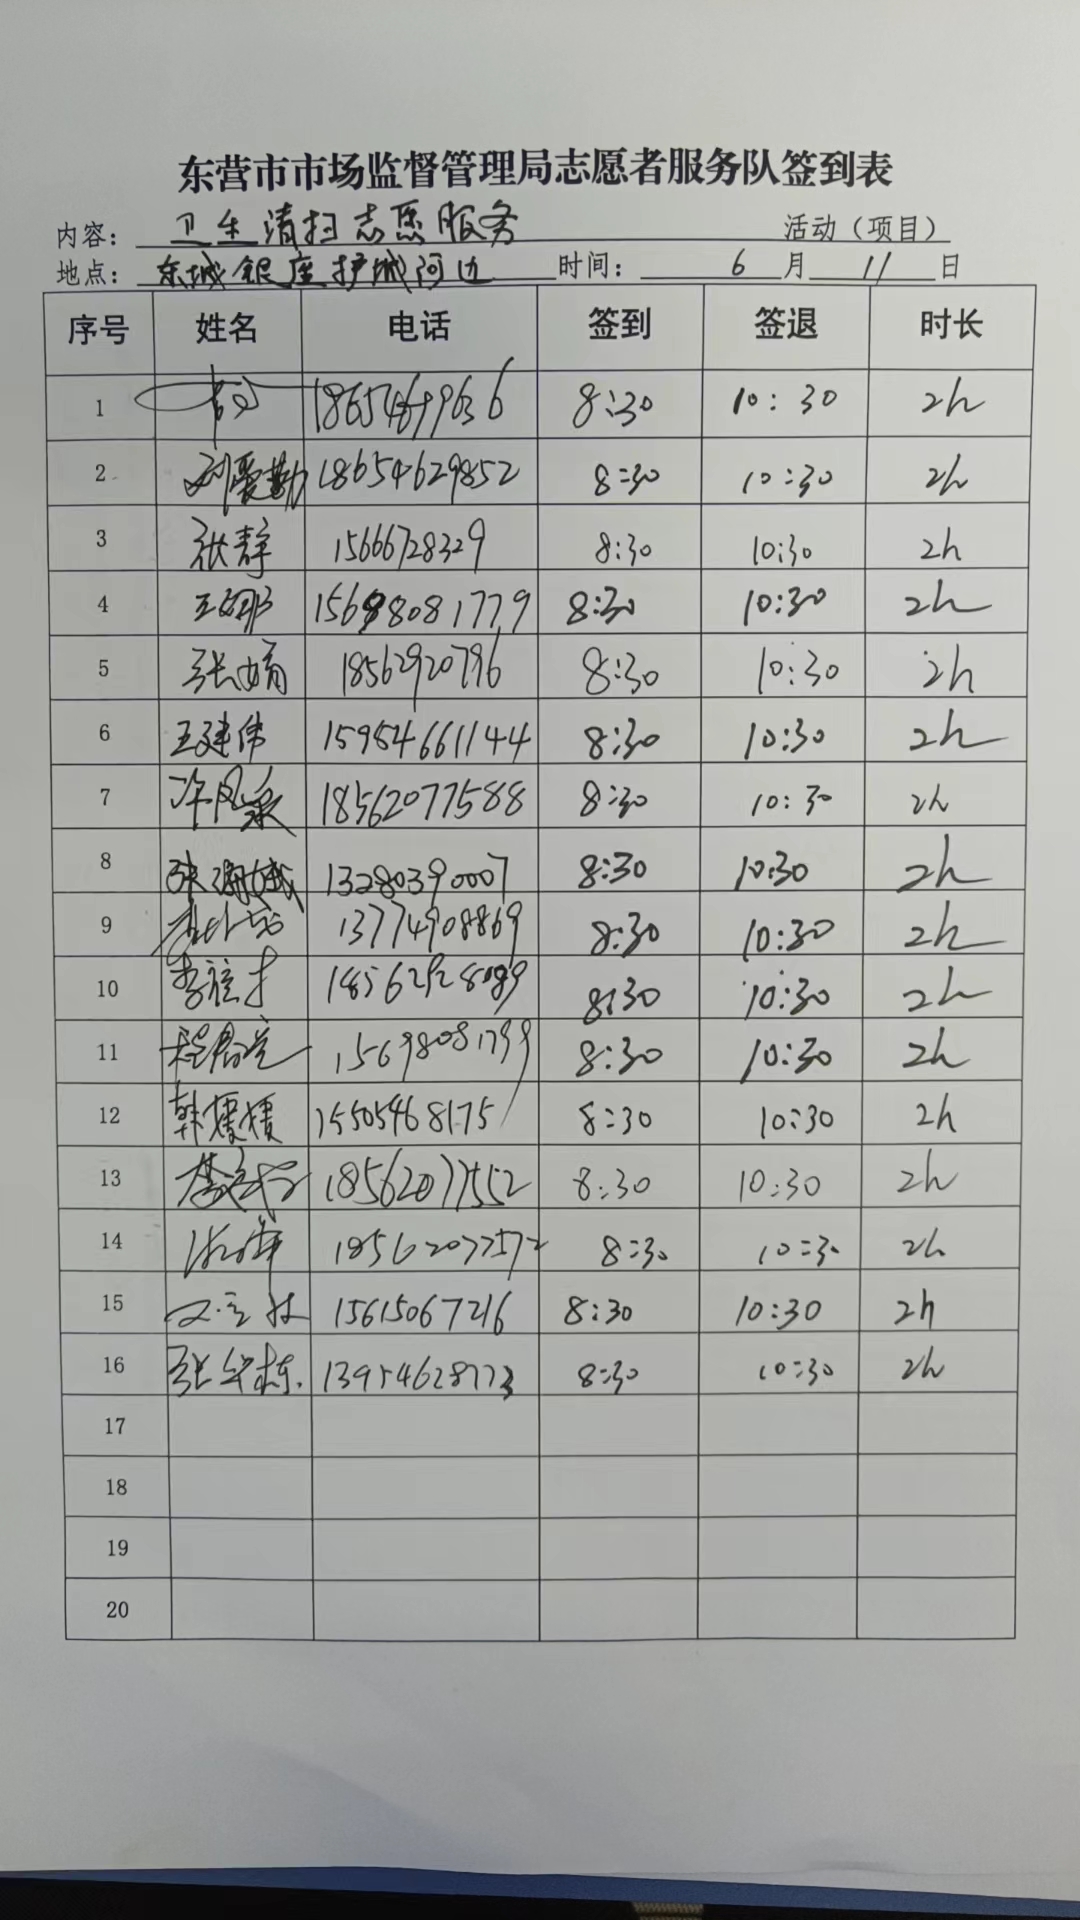 东营市市场监督管理局志愿者服务队签到表
内容：卫生清扫志愿服务 活动（项目）
地点：东城银座护城河边 时间：6月11日
序号 姓名 电话 签到 签退 时长
1 8:30 10:30 2h
2 刘爱勤 18654629852 8:30 10:30 2h
3 张静 15666728329 8:30 10:30 2h
4 王娜 15698081779 8:30 10:30 2h
5 张婧 18562920796 8:30 10:30 2h
6 王建伟 15954661144 8:30 10:30 2h
7 许风泉 18562077588 8:30 10:30 2h
8 13280390007 8:30 10:30 2h
9 13774908869 8:30 10:30 2h
10 8:30 10:30 2h
11 15698081799 8:30 10:30 2h
12 韩媛媛 15505468175 8:30 10:30 2h
13 18562077552 8:30 10:30 2h
14 18562077572 8:30 10:30 2h
15 15615067216 8:30 10:30 2h
16 张华栋 13954628773 8:30 10:30 2h
17
18
19
20